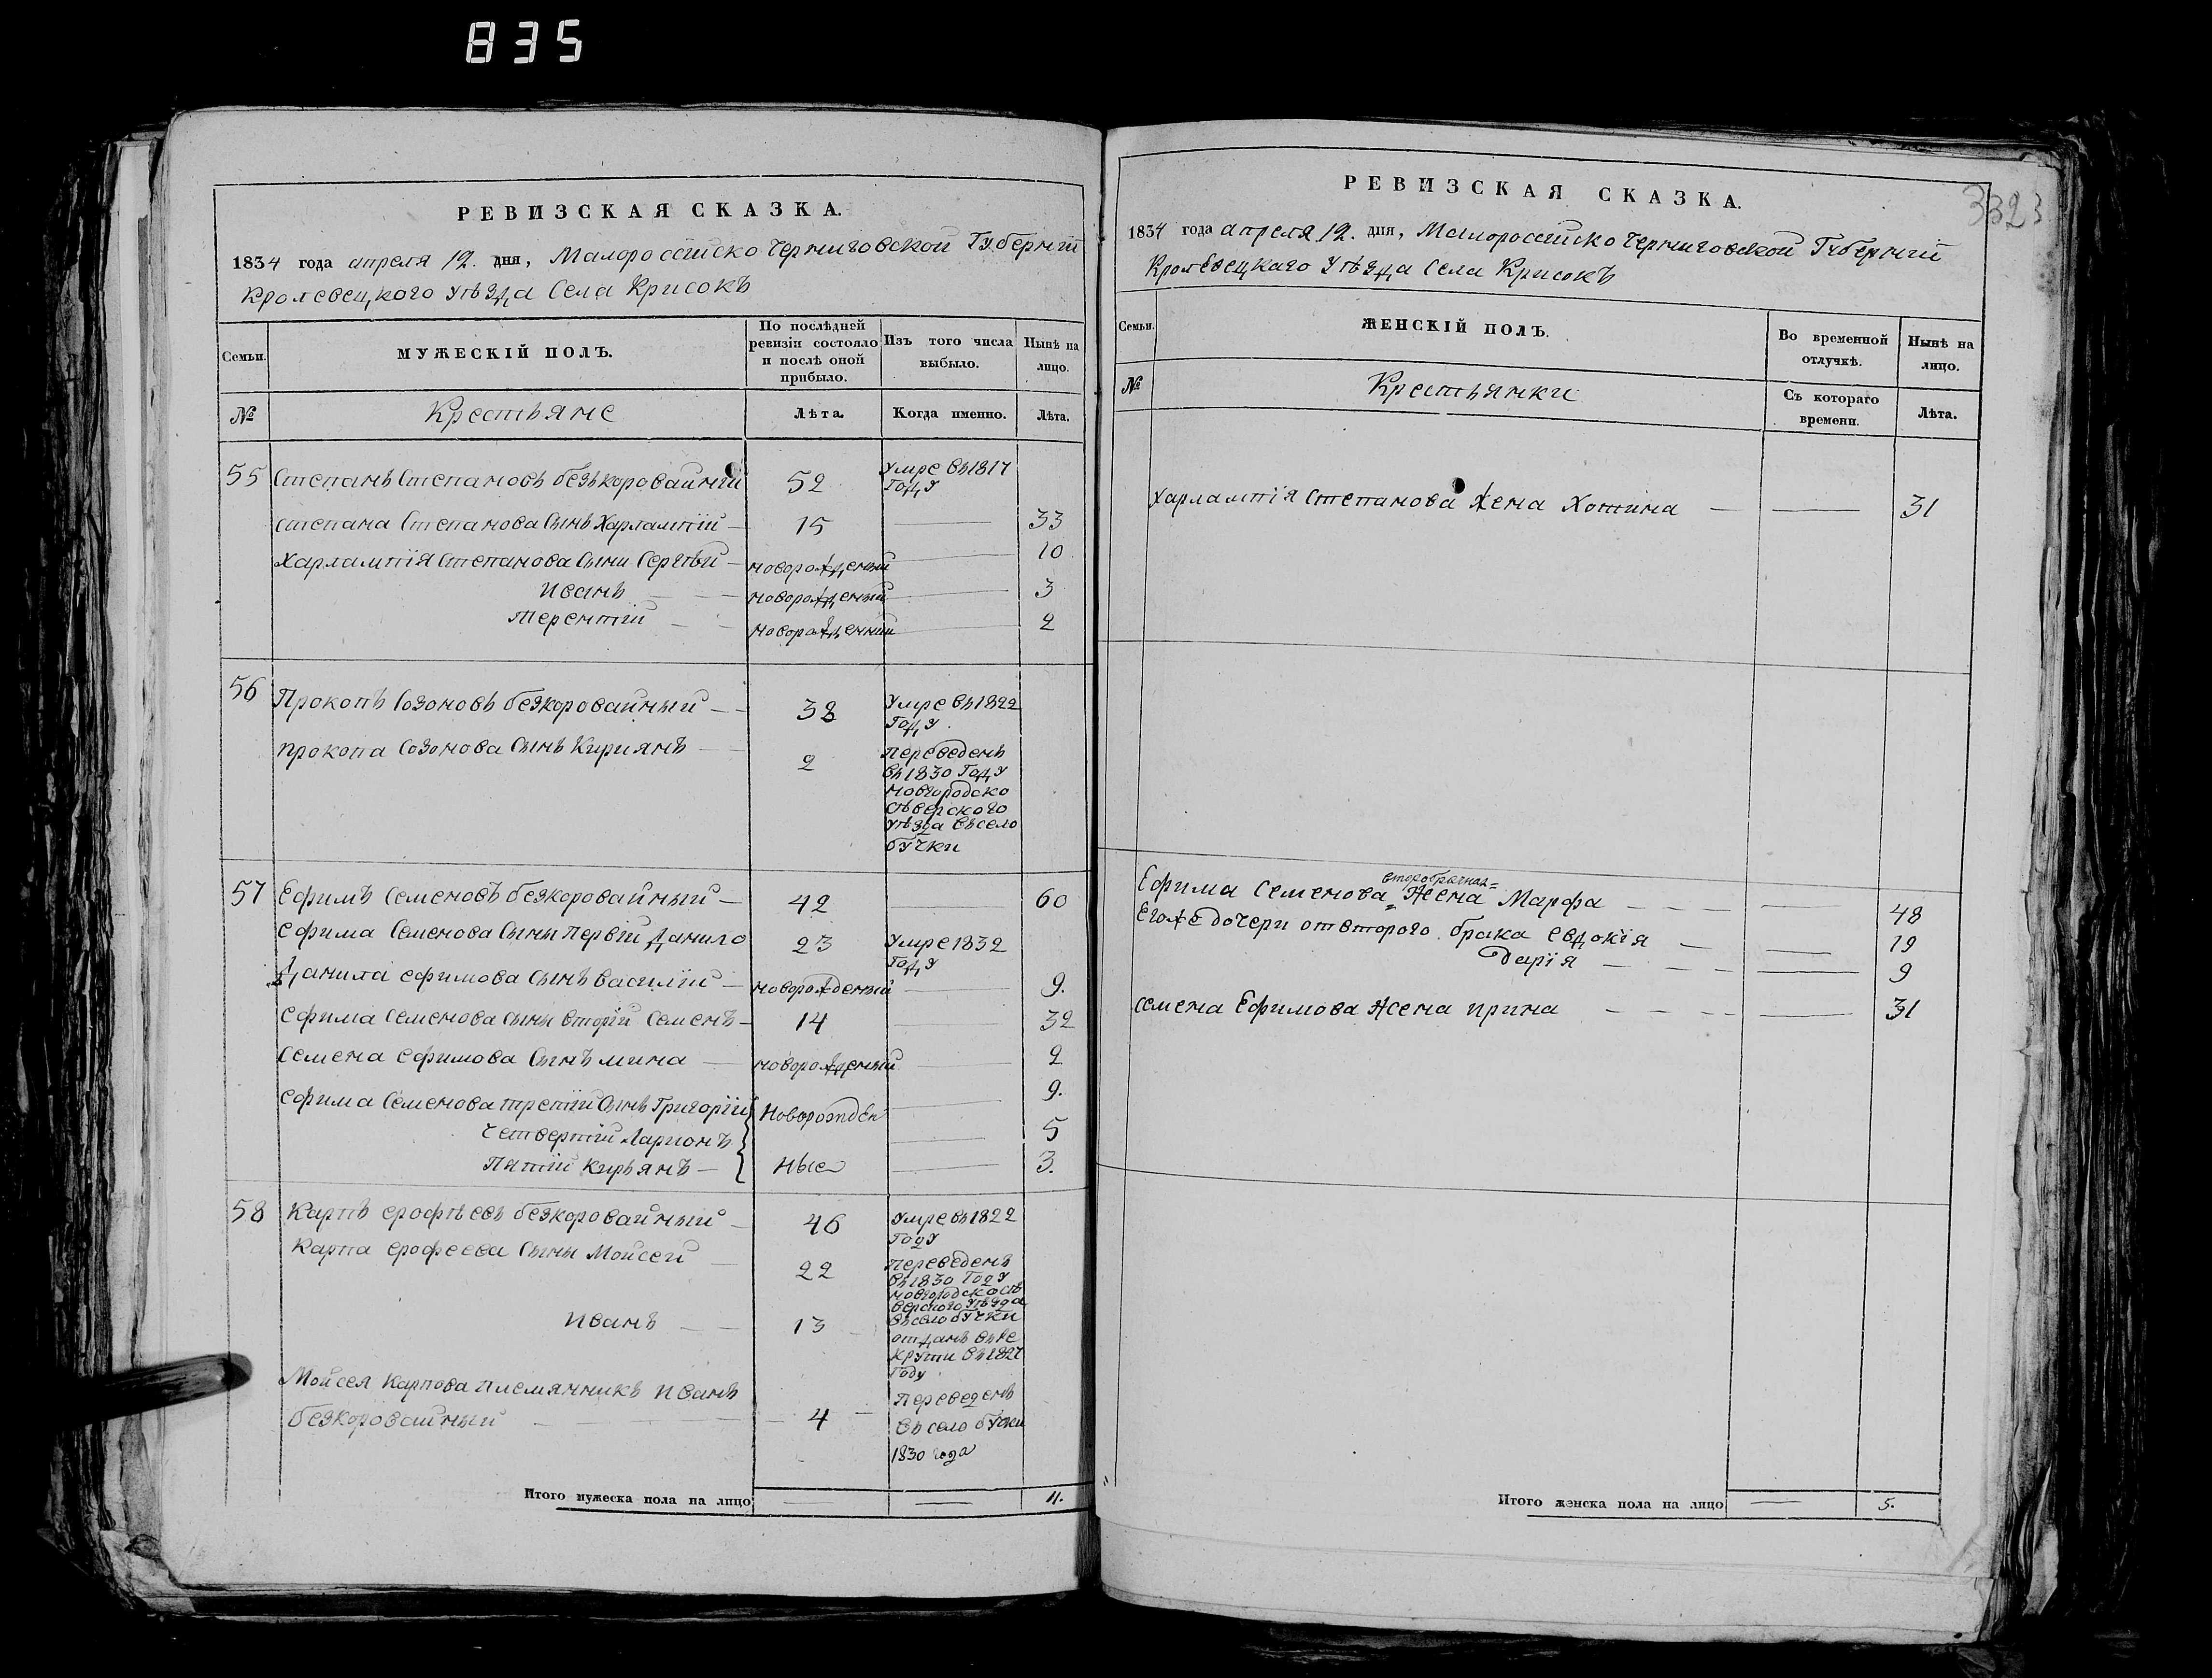 835
РЕВИЗСКАЯ СКАЗКА.
1834 года апреля 12. дня, Малороссійско Черниговской Губерніи
Кролевецкого уѣзда Села Крисокъ
Семьи.
МУЖЕСКІЙ ПОЛЪ.
По послѣдней ревизіи состояло и послѣ оной прибыло.
Изъ того числа выбыло.
Нынѣ на лицо.
№
Крестьяне
Лѣта.
Когда именно.
Лѣта.
55 Степанъ Степановъ безъкоровайний 52 умре въ 1817 Году
степана Степанова Сынъ Харлампій — 15 — 33
Харлампія Степанова Сыны Сергѣй — новорожденый — 10
Иванъ — новорожденый — 3
Терентій — новорожденний — 2
56 Прокопъ Созоновъ безкоровайный — 38 Умре въ 1822 Году.
прокопа Созонова Сынъ Кириянъ — 2 переведенъ
въ 1830 Году
новгородско
сѣверского
уѣзда въ село
бучки
57 Ефимъ Семеновъ безкоровайный — 42 — 60
ефима Семенова Сыны первій Данило 23 Умре 1832 Году
Данила ефимова Сынъ василій — новорожденый — 9.
ефима семенова сыны вторій Семенъ — 14 — 32
Семена ефимова Сынъ мина — новорожденый — 2
ефима Семенова третій Сынъ Григорій } Новорожден — 9.
четвертій Ларионъ — 5
Пятій кирьянъ — } ные — 3.
58 Карпъ ерофѣевъ безкоровайный — 46 Умре въ 1822 Году
Карпа ерофеева Сыны Мойсей — 22 переведенъ
въ 1830 Году
новгородскосѣ
верского уѣзда
въ село бучки
Иванъ — 13 — отданъ въ ре
круты въ 1827
Году
Мойсея Карпова племянникъ иванъ
безкоровайный — 4 — переведенъ
въ село бучки
1830 года
Итого мужеска пола на лицо — — 11.
3323
РЕВИЗСКАЯ СКАЗКА.
1834 года апреля 12. дня, Малоросийско черниговской Губерніи
Кролевецкаго Уѣзда Села Крисокъ
Семьи.
ЖЕНСКІЙ ПОЛЪ.
Во временной отлучкѣ.
Нынѣ на лицо.
№
Крестьянки
Съ котораго времени.
Лѣта.
харлампія степанова Жена Хотина — — 31
второбрачная=
Ефима Семенова = Жена Марфа — — 48
Егоже дочери отвторого брака евдокія — — 19
дарія — — 9
семена Ефимова Жена ирина — — 31
Итого женска пола на лицо — 5.